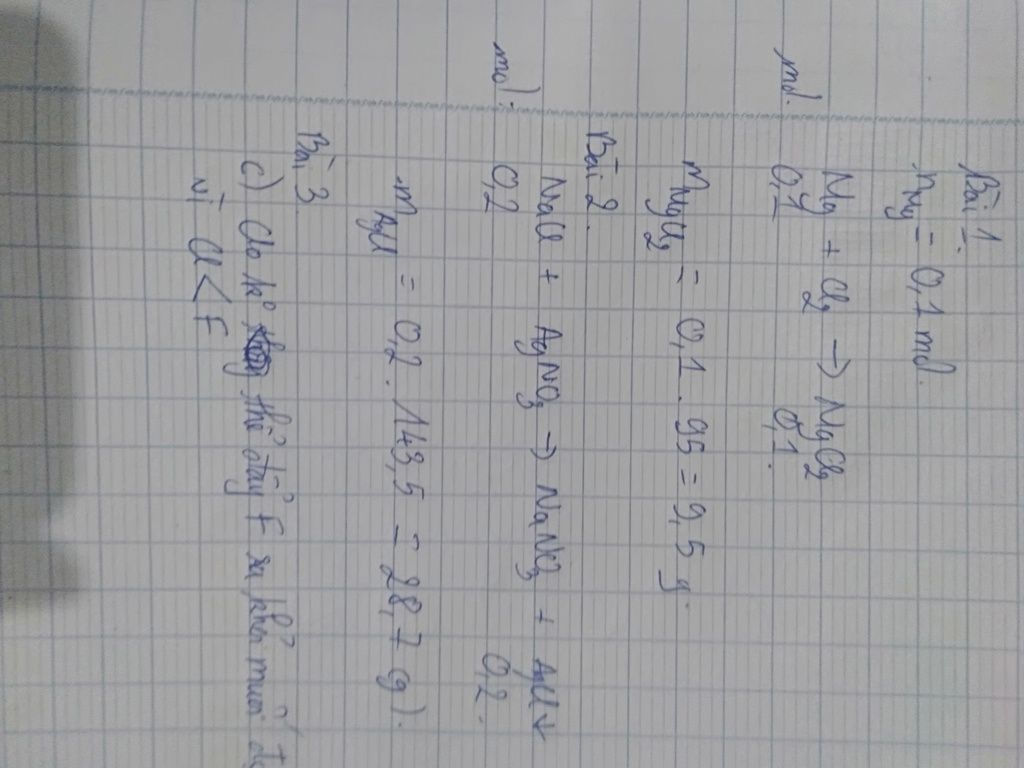 Bài 1.
nMg = 0,1 mol.
Mg + Cl2 → MgCl2
mol. 0,1 0,1.
mMgCl2 = 0,1 . 95 = 9,5 g.
Bài 2.
NaCl + AgNO3 → NaNO3 + AgCl↓
mol: 0,2 0,2.
mAgCl = 0,2 . 143,5 = 28,7 g).
Bài 3.
c) Clo ko thể đẩy F ra khỏi muối
vì Cl < F